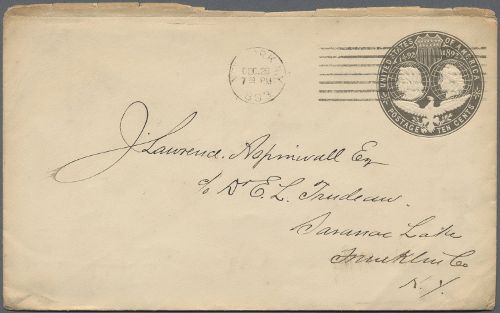 NEW YORK, N.Y.
DEC 29
7 30 PM
93
UNITED STATES OF AMERICA
1492 1892
POSTAGE TEN CENTS
J. Lawrence. Aspinwall Esq
c/o Dr E. L. Trudeau.
Saranac Lake
Franklin Co
N. Y.